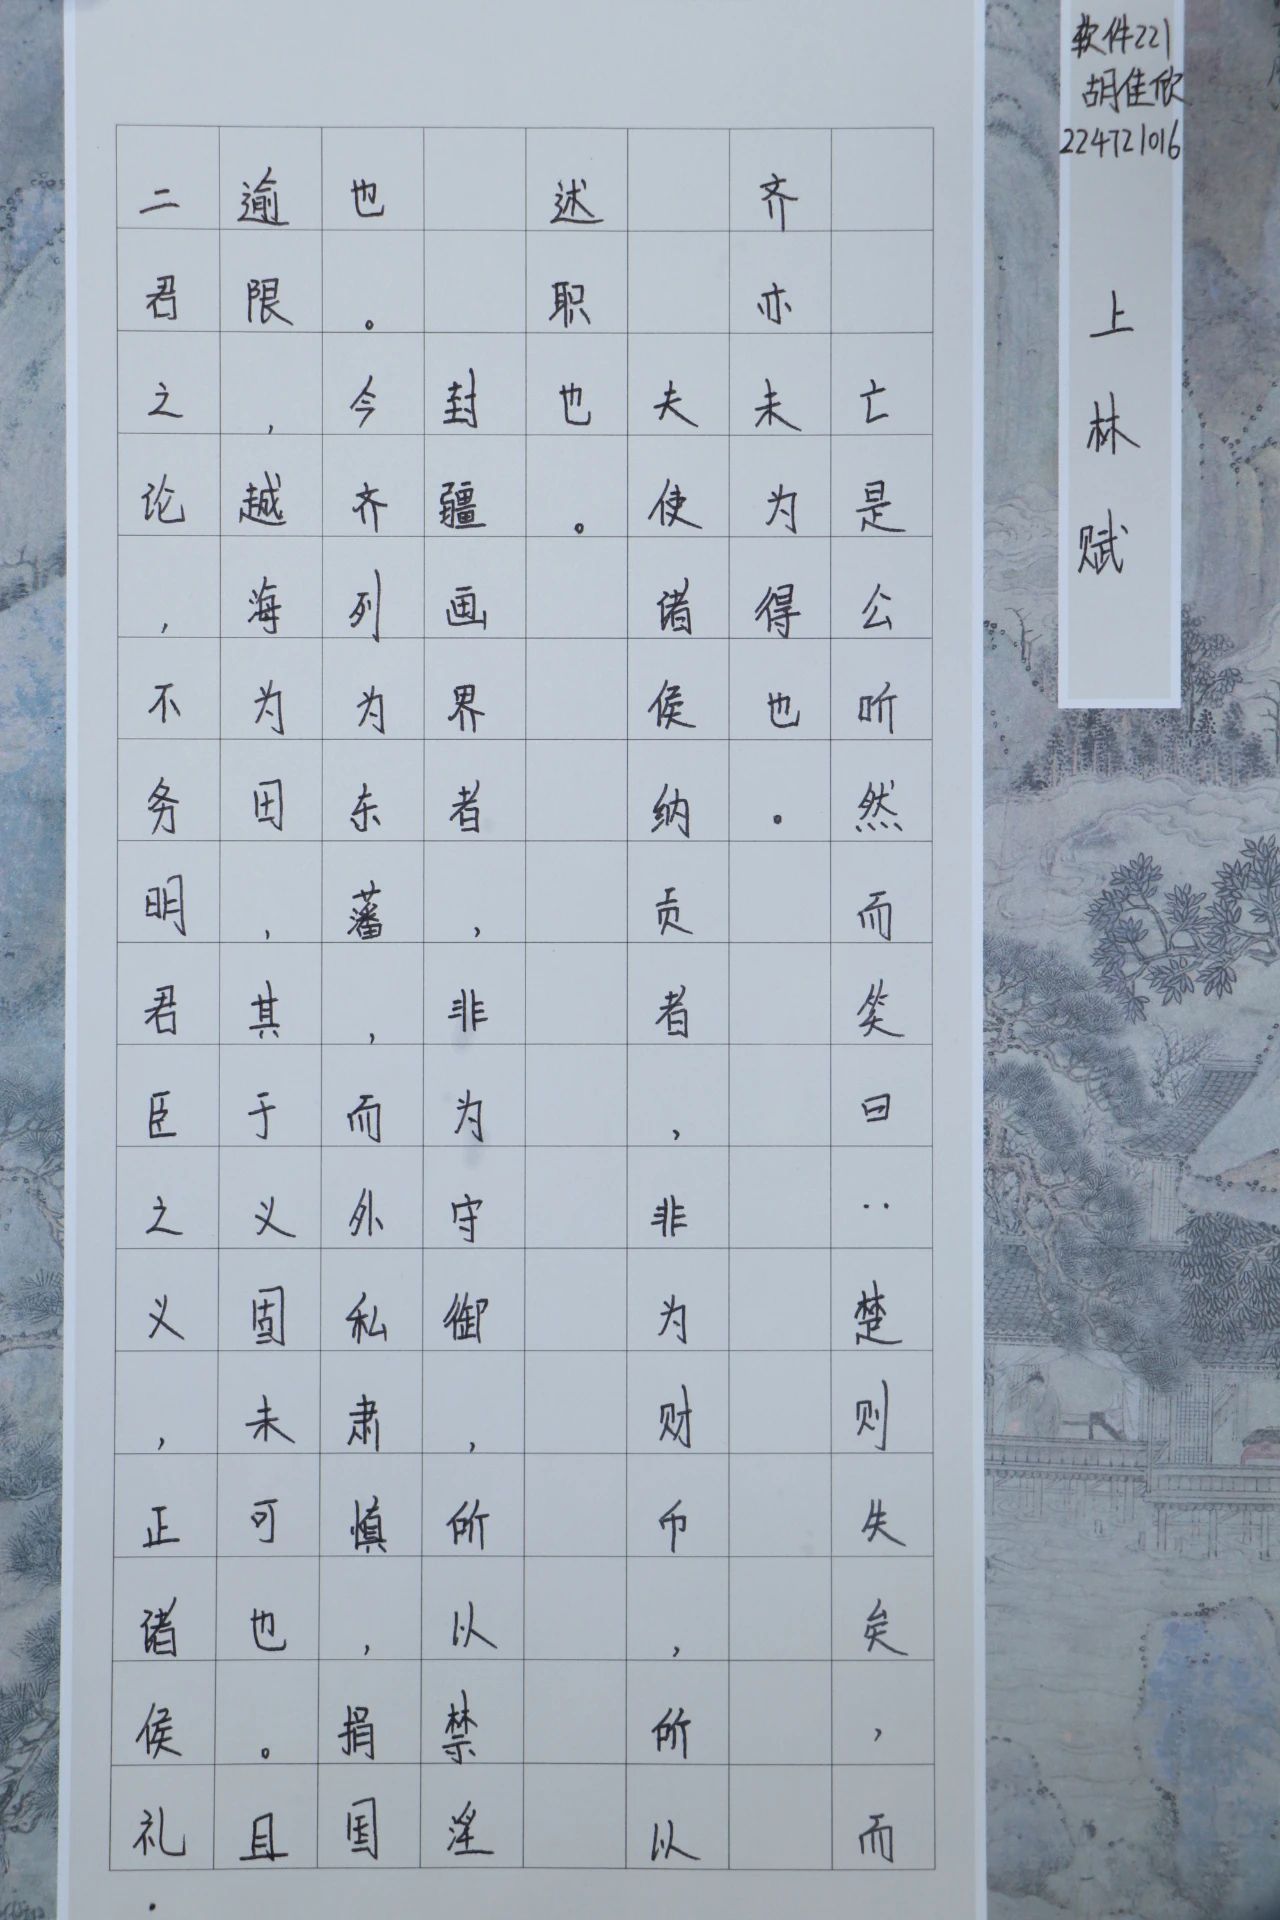 软件221
胡佳欣
224721016
上林赋
亡是公听然而笑曰：楚则失矣，而
齐亦未为得也。
夫使诸侯纳贡者，非为财币，所以
述职也。
封疆画界者，非为守御，所以禁淫
也。今齐列为东藩，而外私肃慎，捐国
逾限，越海为田，其于义固未可也。且
二君之论，不务明君臣之义，正诸侯礼